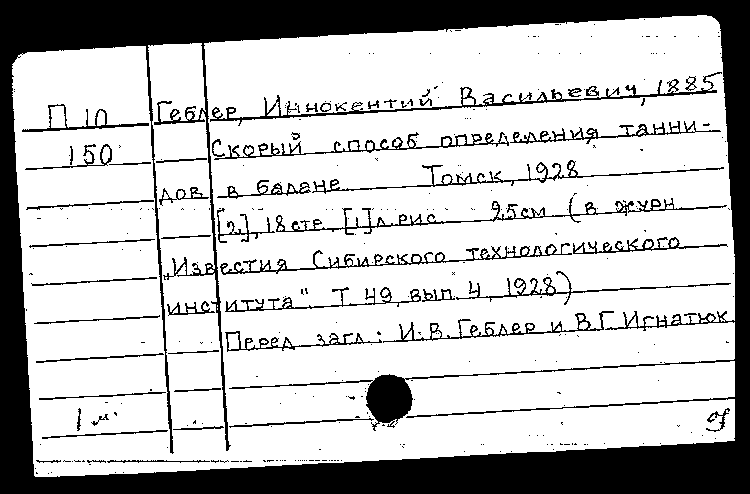 П 10 Геблер, Иннокентий Васильевич, 1885
150 Скорый способ определения танни-
дов в бадане Томск, 1928
[2], 18 стр., [1] л. рис. 25 см (в журн.
„Известия Сибирского технологического
института". Т. 49, вып. 4, 1928)
Перед загл.: И.В. Геблер и В.Г. Игнатюк
1 м.